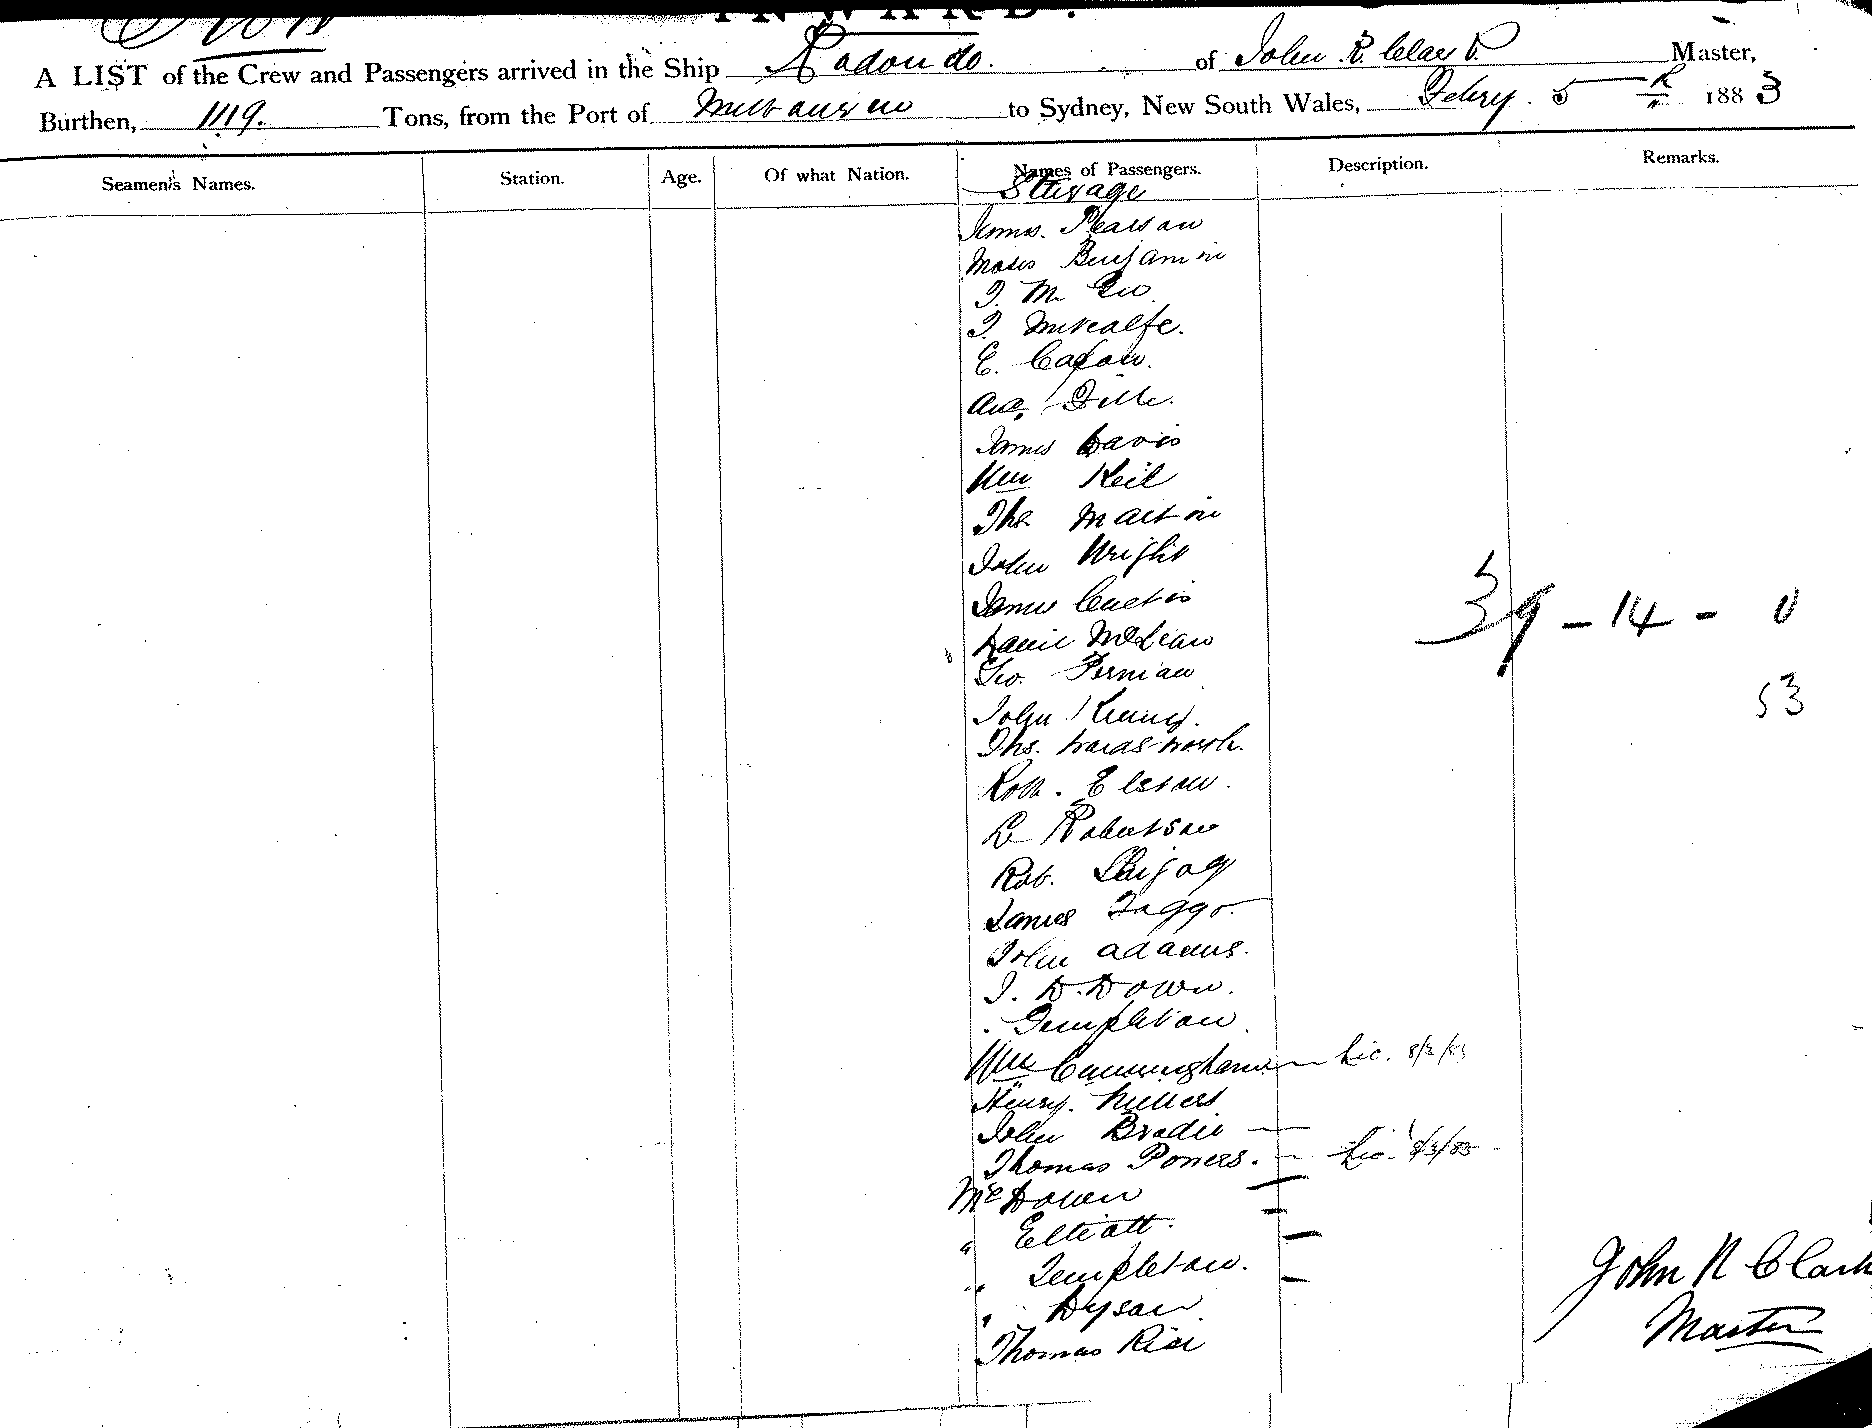 INWARD.
A LIST of the Crew and Passengers arrived in the Ship Rodondo. of John R. Clark Master,
Burthen, 1119. Tons, from the Port of Melbourne to Sydney, New South Wales, Febry. 5 1883
Seamen's Names. Station. Age. Of what Nation. Names of Passengers. Description. Remarks.
Steerage
James. Pearson
Moses Benjamin
J. M.
J. Metcalfe.
E.
James Davis
Wm Keil
Ths Martin
John Wright
James Curtis
39 - 14 - 0
McLean
Geo.
53
John
Ths. Wardsworth.
Robt. Elston.
Robertson
Rob.
James Taggt.
John Adams.
J. D. Down.
Templeton
Wm Cunningham — Lic. 8/2/83
Henry.
John Brodie —
Thomas Powers. — Lic. 8/3/83
Mc Down —
" Elliott. —
" Templeton. —
" Dyson
John R Clark
Master
Thomas Rice